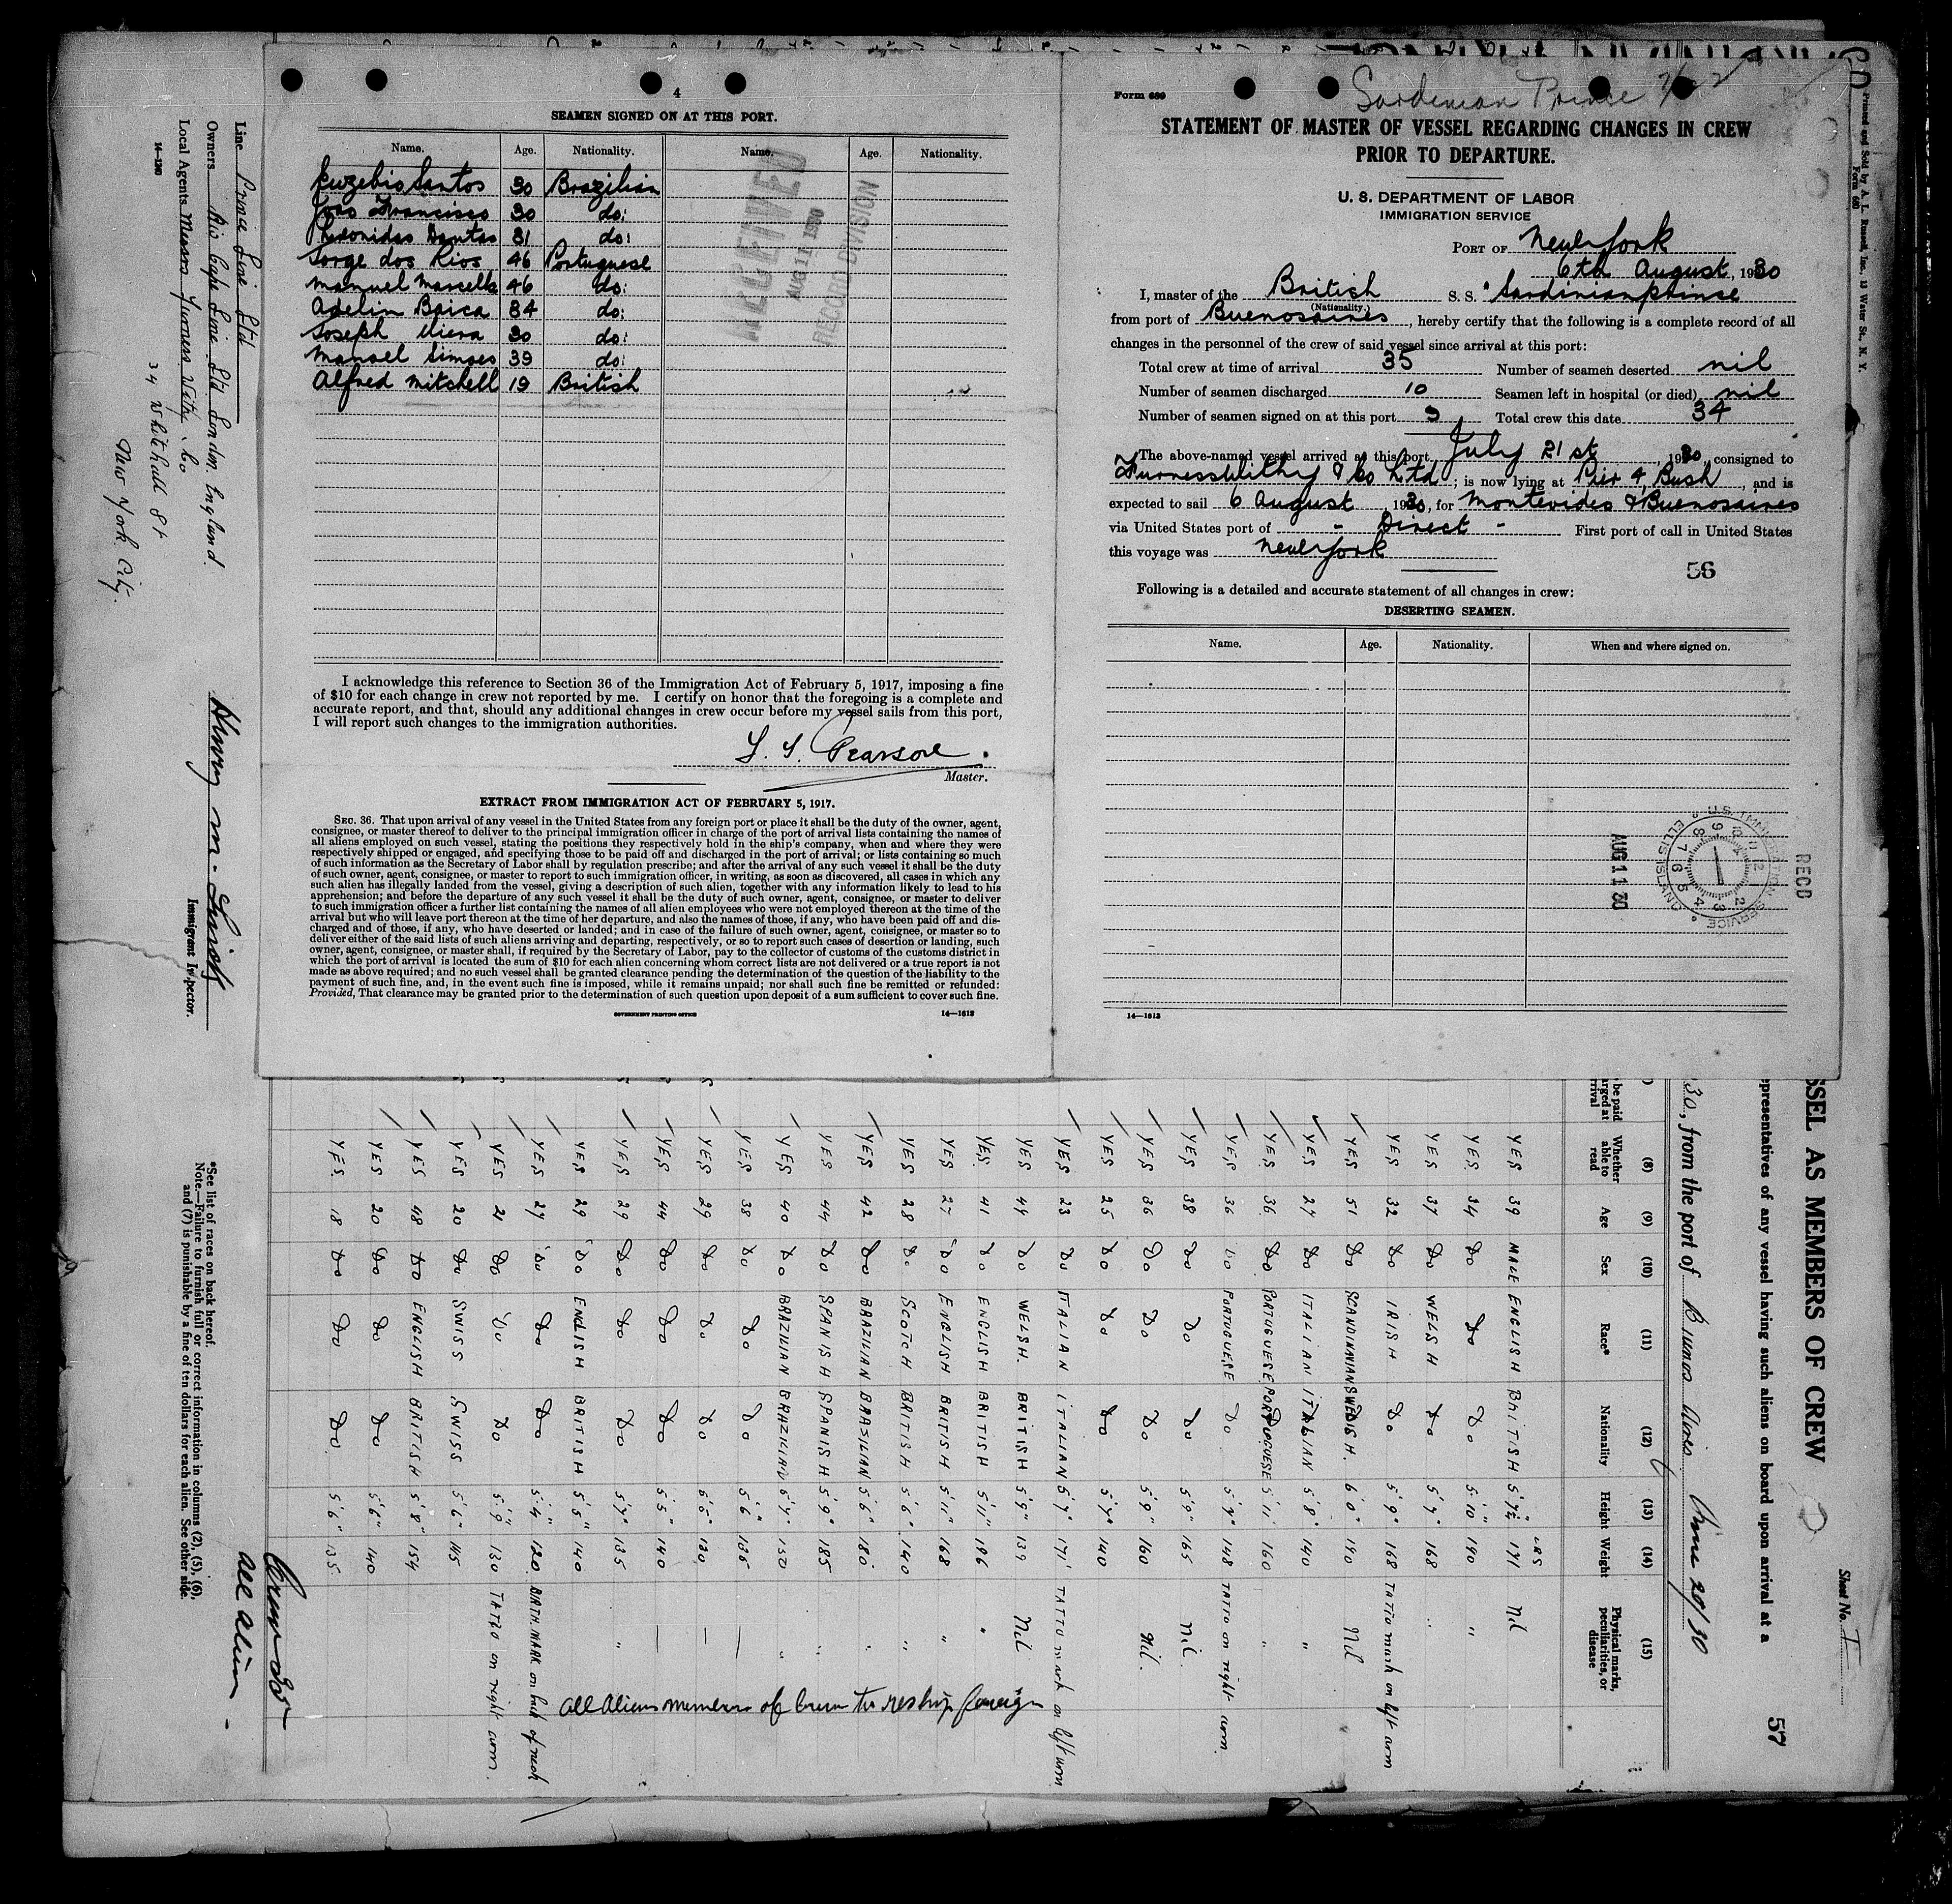 4
SEAMEN SIGNED ON AT THIS PORT.
Name. Age. Nationality. Name. Age. Nationality.
Euzebio Santos 30 Brazilian
Joao Francisco 30 do:
Leonidas Dantas 31 do:
Jorge dos Rios 46 Portuguese
Manuel Marcella 46 do:
Adelin Brica 34 do:
Joseph Viera 30 do:
Manoel Simoes 39 do:
Alfred Mitchell 19 British
RECEIVED
AUG 11 1930
RECORD DIVISION
I acknowledge this reference to Section 36 of the Immigration Act of February 5, 1917, imposing a fine
of $10 for each change in crew not reported by me. I certify on honor that the foregoing is a complete and
accurate report, and that, should any additional changes in crew occur before my vessel sails from this port,
I will report such changes to the immigration authorities.
Pearson
Master.
EXTRACT FROM IMMIGRATION ACT OF FEBRUARY 5, 1917.
SEC. 36. That upon arrival of any vessel in the United States from any foreign port or place it shall be the duty of the owner, agent,
consignee, or master thereof to deliver to the principal immigration officer in charge of the port of arrival lists containing the names of
all aliens employed on such vessel, stating the positions they respectively hold in the ship's company, when and where they were
respectively shipped or engaged, and specifying those to be paid off and discharged in the port of arrival; or lists containing so much
of such information as the Secretary of Labor shall by regulation prescribe; and after the arrival of any such vessel it shall be the duty
of such owner, agent, consignee, or master to report to such immigration officer, in writing, as soon as discovered, all cases in which any
such alien has illegally landed from the vessel, giving a description of such alien, together with any information likely to lead to his
apprehension; and before the departure of any such vessel it shall be the duty of such owner, agent, consignee, or master to deliver
to such immigration officer a further list containing the names of all alien employees who were not employed thereon at the time of the
arrival but who will leave port thereon at the time of her departure, and also the names of those, if any, who have been paid off and dis-
charged and of those, if any, who have deserted or landed; and in case of the failure of such owner, agent, consignee, or master so to
deliver either of the said lists of such aliens arriving and departing, respectively, or so to report such cases of desertion or landing, such
owner, agent, consignee, or master shall, if required by the Secretary of Labor, pay to the collector of customs of the customs district in
which the port of arrival is located the sum of $10 for each alien concerning whom correct lists are not delivered or a true report is not
made as above required; and no such vessel shall be granted clearance pending the determination of the question of the liability to the
payment of such fine, and, in the event such fine is imposed, while it remains unpaid; nor shall such fine be remitted or refunded:
Provided, That clearance may be granted prior to the determination of such question upon deposit of a sum sufficient to cover such fine.
GOVERNMENT PRINTING OFFICE 14—1613
Form 689
Sardinian Prince 7/22
STATEMENT OF MASTER OF VESSEL REGARDING CHANGES IN CREW
PRIOR TO DEPARTURE.
U. S. DEPARTMENT OF LABOR
IMMIGRATION SERVICE
PORT OF New York
6th August, 1930
I, master of the British S. S. "Sardinian Prince
(Nationality.)
from port of Buenosaires, hereby certify that the following is a complete record of all
changes in the personnel of the crew of said vessel since arrival at this port:
Total crew at time of arrival 35 Number of seamen deserted nil
Number of seamen discharged 10 Seamen left in hospital (or died) nil
Number of seamen signed on at this port 9 Total crew this date 34
The above-named vessel arrived at this port July 21st, 1930, consigned to
Furness Withy & Co Ltd; is now lying at Pier 4, Bush, and is
expected to sail 6 August, 1930, for Montevideo & Buenosaires
via United States port of - Direct - First port of call in United States
this voyage was New York
56
Following is a detailed and accurate statement of all changes in crew:
DESERTING SEAMEN.
Name. Age. Nationality. When and where signed on.
U.S. IMMIGRATION SERVICE ELLIS ISLAND
AUG 11 30
RECD
14—1613
Printed and Sold by A. L. Russell, Inc., 13 Water St., N. Y.
Form 680
Line Prince Line Ltd
Owners Rio Cape Line Ltd London England.
Local Agents Messrs Furness Withy & Co
34 Whitehall St
New York City.
14—1240
Henry M.
Immigrant Inspector.
*See list of races on back hereof.
Note.—Failure to furnish full or correct information in columns (2), (5), (6),
and (7) is punishable by a fine of ten dollars for each alien. See other side.
Crew 35
All Alien -
Sheet No. I
57
SSEL AS MEMBERS OF CREW
epresentatives of any vessel having such aliens on board upon arrival at a
30, from the port of Buenos Aires June 29/30
be paid arged at rrival
(8) Whether able to read
(9) Age
(10) Sex
(11) Race*
(12) Nationality
(13) Height
(14) Weight
(15) Physical marks, peculiarities, or disease
LBS
YES 39 MALE ENGLISH BRITISH 5'7½" 171 Nil
YES. 34 Do Do Do 5'10" 190 "
YES 37 Do WELSH Do 5'7" 168 "
YES 32 Do IRISH Do 5'9" 168 TATTO mark on left arm
YES 51 Do SCANDINAVIAN SWEDISH. 6'0" 190 Nil
YES 27 Do ITALIAN ITALIAN 5'8" 140 "
YES. 36 Do PORTUGUESE PORTUGUESE 5'11" 160 "
YES 36 Do PORTUGUESE Do 5'7" 148 TATTO on right arm.
YES 38 Do Do Do 5'9" 165 Nil.
YES 36 Do Do Do 5'9" 160 Nil.
YES 25 Do Do Do 5'7" 140
YES 23 Do ITALIAN ITALIAN 5'7" 171 TATTO mark on left arm
YES 49 Do WELSH. BRITISH 5'9" 139 Nil
YES. 41 Do ENGLISH BRITISH 5'11" 196 "
YES 27 Do ENGLISH BRITISH 5'11" 168 "
YES 28 Do SCOTCH BRITISH 5'6" 140 "
YES 42 Do BRAZILIAN BRASILIAN 5'6" 180 "
YES 44 Do SPANISH SPANISH 5'9" 185 "
YES 40 Do BRAZILIAN BRAZILIAN 5'7" 150 "
YES 38 Do Do Do 5'6" 136 —
YES 29 Do Do Do 5'5" 130 —
YES 44 Do Do Do 5'5" 140 —
YES 29 Do Do Do 5'7" 135 "
YES 29 Do ENGLISH BRITISH 5'5" 140
YES 27 Do Do Do 5'4" 120 BIRTH MARK on back of neck
YES 21 Do Do Do 5'9" 130 TATTO on right arm.
YES 20 Do SWISS SWISS 5'6" 145
YES 48 Do ENGLISH BRITISH 5'8" 154
YES 20 Do Do Do 5'6" 140
YES. 18 Do Do Do 5'6" 135
All Aliens members of Crew to reship foreign